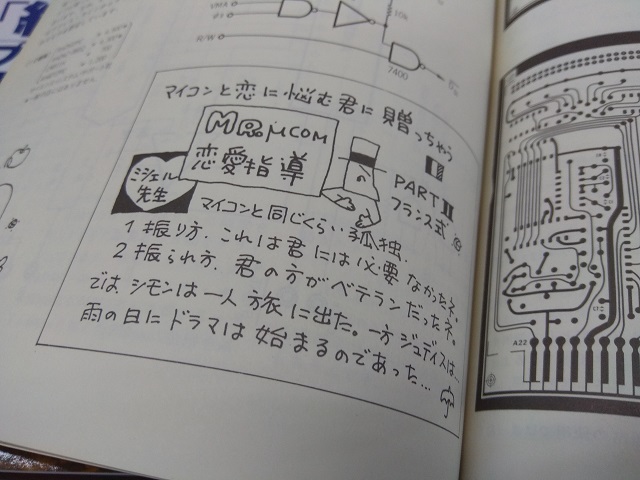 VMA
R/W
10k
7400
マイコンと恋に悩む君に贈っちゃう
MR.μCOM
恋愛指導
ミシェル
先生
PART II
フランス式
マイコンと同じくらい孤独.
1 振り方. これは君には必要なかったネ.
2 振られ方. 君の方がベテランだったネ.
では, シモンは一人旅に出た。一方ジュディスは、
雨の日にドラマは始まるのであった…
A22